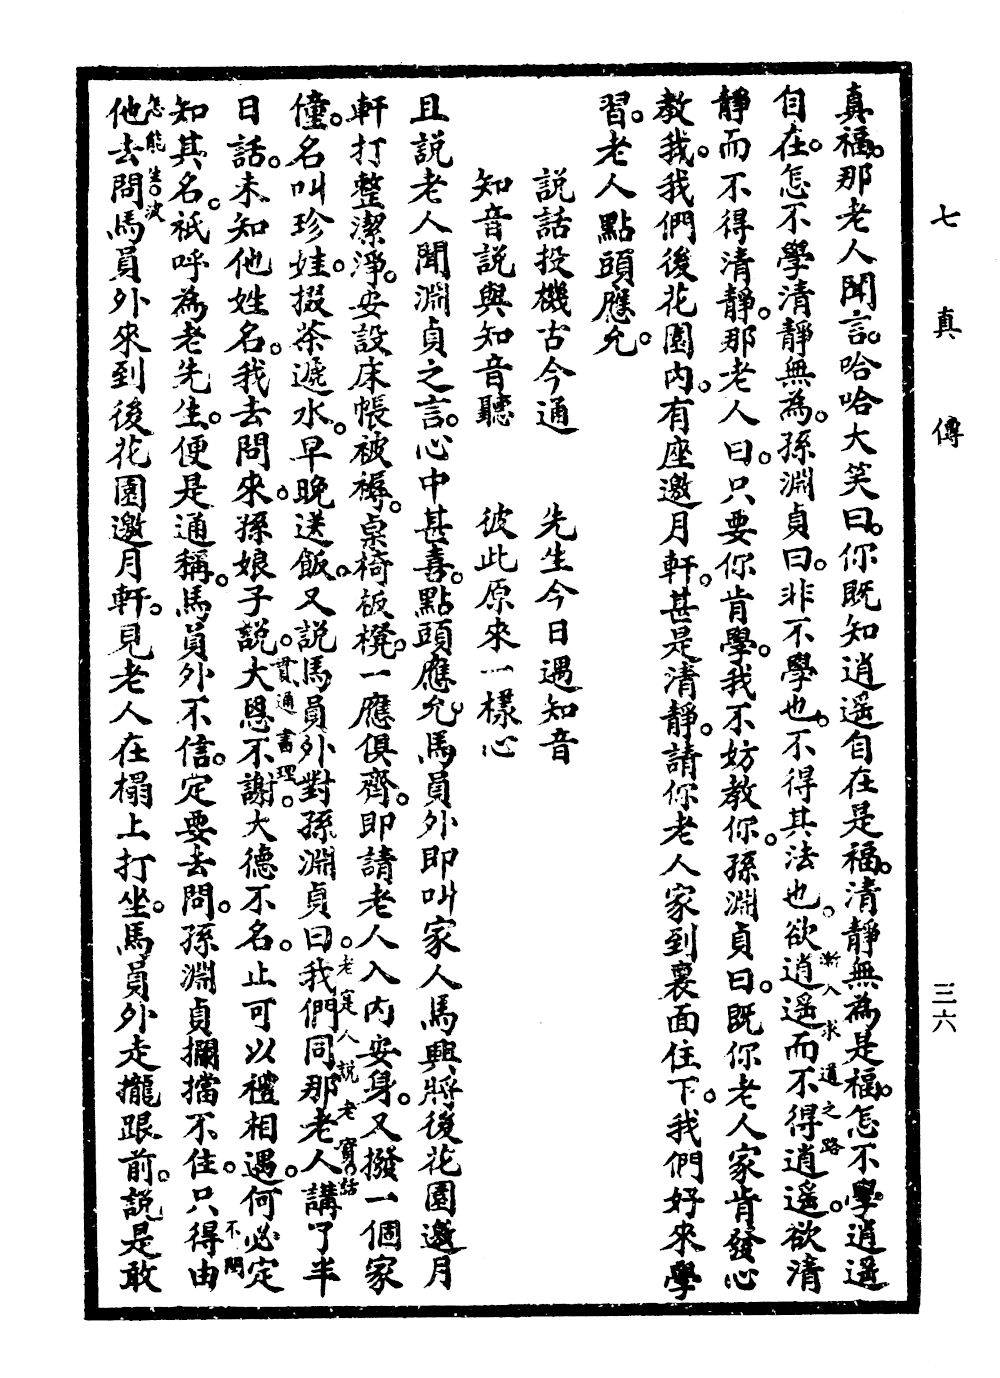 七真傳
三六
真福。那老人聞言。哈哈大笑曰。你既知逍遥自在是福。清靜無為是福。怎不學逍遥
自在。怎不學清靜無為。孫淵貞曰。非不學也。不得其法也。欲逍遥而不得逍遥。欲清
漸入求道之路
靜而不得清靜。那老人曰。只要你肯學。我不妨教你。孫淵貞曰。既你老人家肯發心
教我。我們後花園內。有座邀月軒。甚是清靜。請你老人家到裏面住下。我們好來學
習。老人點頭應允。
說話投機古今通　先生今日遇知音
知音說與知音聽　彼此原來一樣心
且說老人聞淵貞之言。心中甚喜。點頭應允。馬員外即叫家人馬興將後花園邀月
軒打整潔淨。安設床帳被褥。桌椅板櫈。一應俱齊。即請老人入內安身。又撥一個家
僮。名叫珍娃。掇茶遞水。早晚送飯。又說馬員外對孫淵貞曰。我們同那老人講了半
老寔人說老實話
日話。未知他姓名。我去問來。孫娘子說。大恩不謝。大德不名。止可以禮相遇。何必定
貫通書理。
知其名。祇呼為老先生。便是通稱。馬員外不信。定要去問。孫淵貞攔擋不住。只得由
不問
怎能生波
他去問。馬員外來到後花園邀月軒。見老人在榻上打坐。馬員外走攏跟前。說是敢